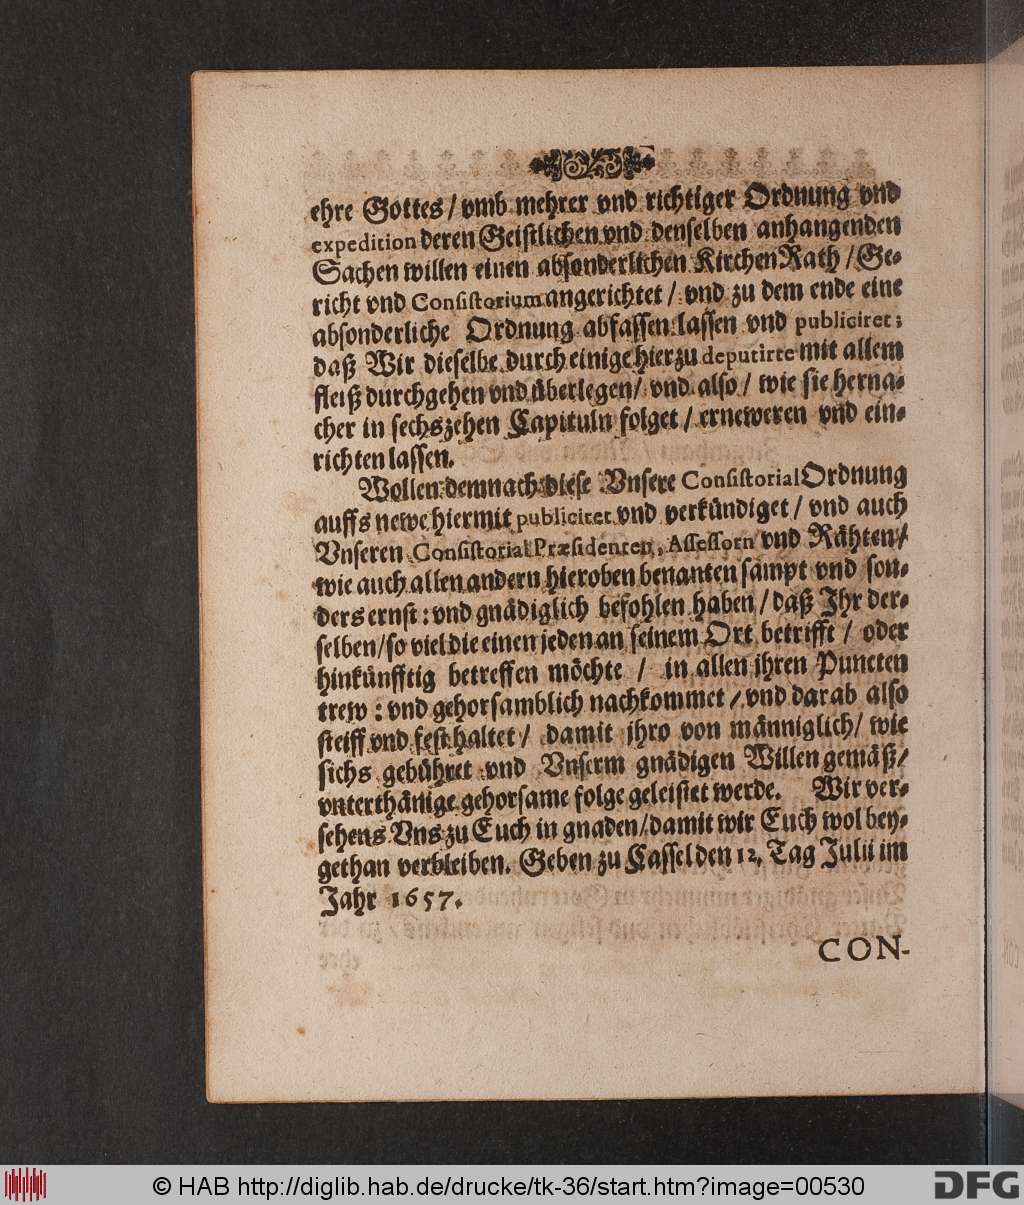 ehre Gottes / vmb mehrer vnd richtiger Ordnung vnd
expedition deren Geistlichen vnd denselben anhangenden
Sachen willen einen absonderlichen KirchenRath / Ge-
richt vnd Consistorium angerichtet / vnd zu dem ende eine
absonderliche Ordnung abfassen lassen vnd publiciret;
daß Wir dieselbe durch einige hierzu deputirte mit allem
fleiß durchgehen vnd überlegen / vnd also / wie sie herna-
cher in sechszehen Capituln folget / erneweren vnd ein-
richten lassen.
Wollen demnach diese Vnsere Consistorial Ordnung
auffs newe hiermit publiciret vnd verkündiget / vnd auch
Vnseren Consistorial Præsidenten, Assessorn vnd Rähten /
wie auch allen andern hieroben benanten sampt vnd son-
ders ernst: vnd gnädiglich befohlen haben / daß Ihr der-
selben / so viel die einen jeden an seinem Ort betrifft / oder
hinkünfftig betreffen möchte / in allen ihren Puncten
trew: vnd gehorsamblich nachkommet / vnd darab also
steiff vnd fest haltet / damit ihro von männiglich / wie
sichs gebühret vnd Vnserm gnädigen Willen gemäß /
vnterthänige gehorsame folge geleistet werde. Wir ver-
sehens Vns zu Euch in gnaden / damit wir Euch wol bey-
gethan verbleiben. Geben zu Cassel den 12. Tag Julii im
Jahr 1657.
CON-
© HAB http://diglib.hab.de/drucke/tk-36/start.htm?image=00530
DFG